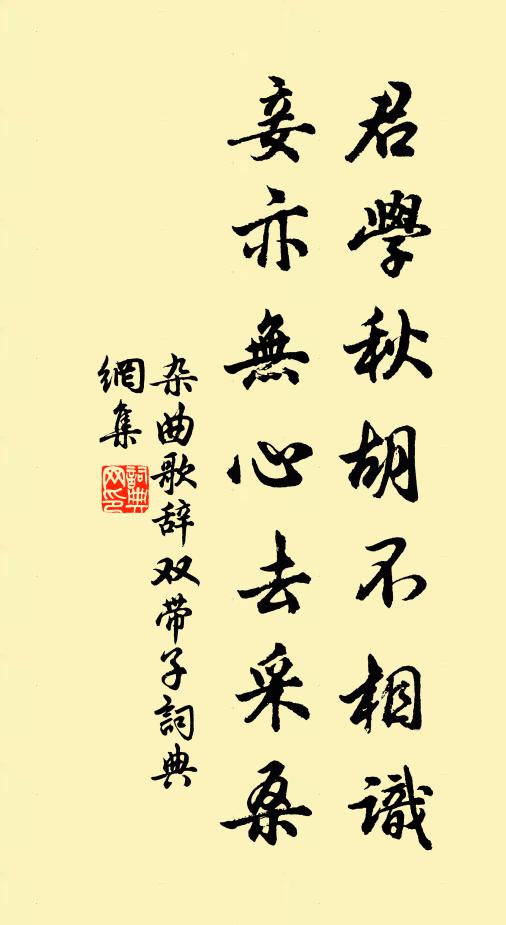 君學秋胡不相識
妾亦無心去采桑
杂曲歌辞双带子詞典
網集
詞典
网印